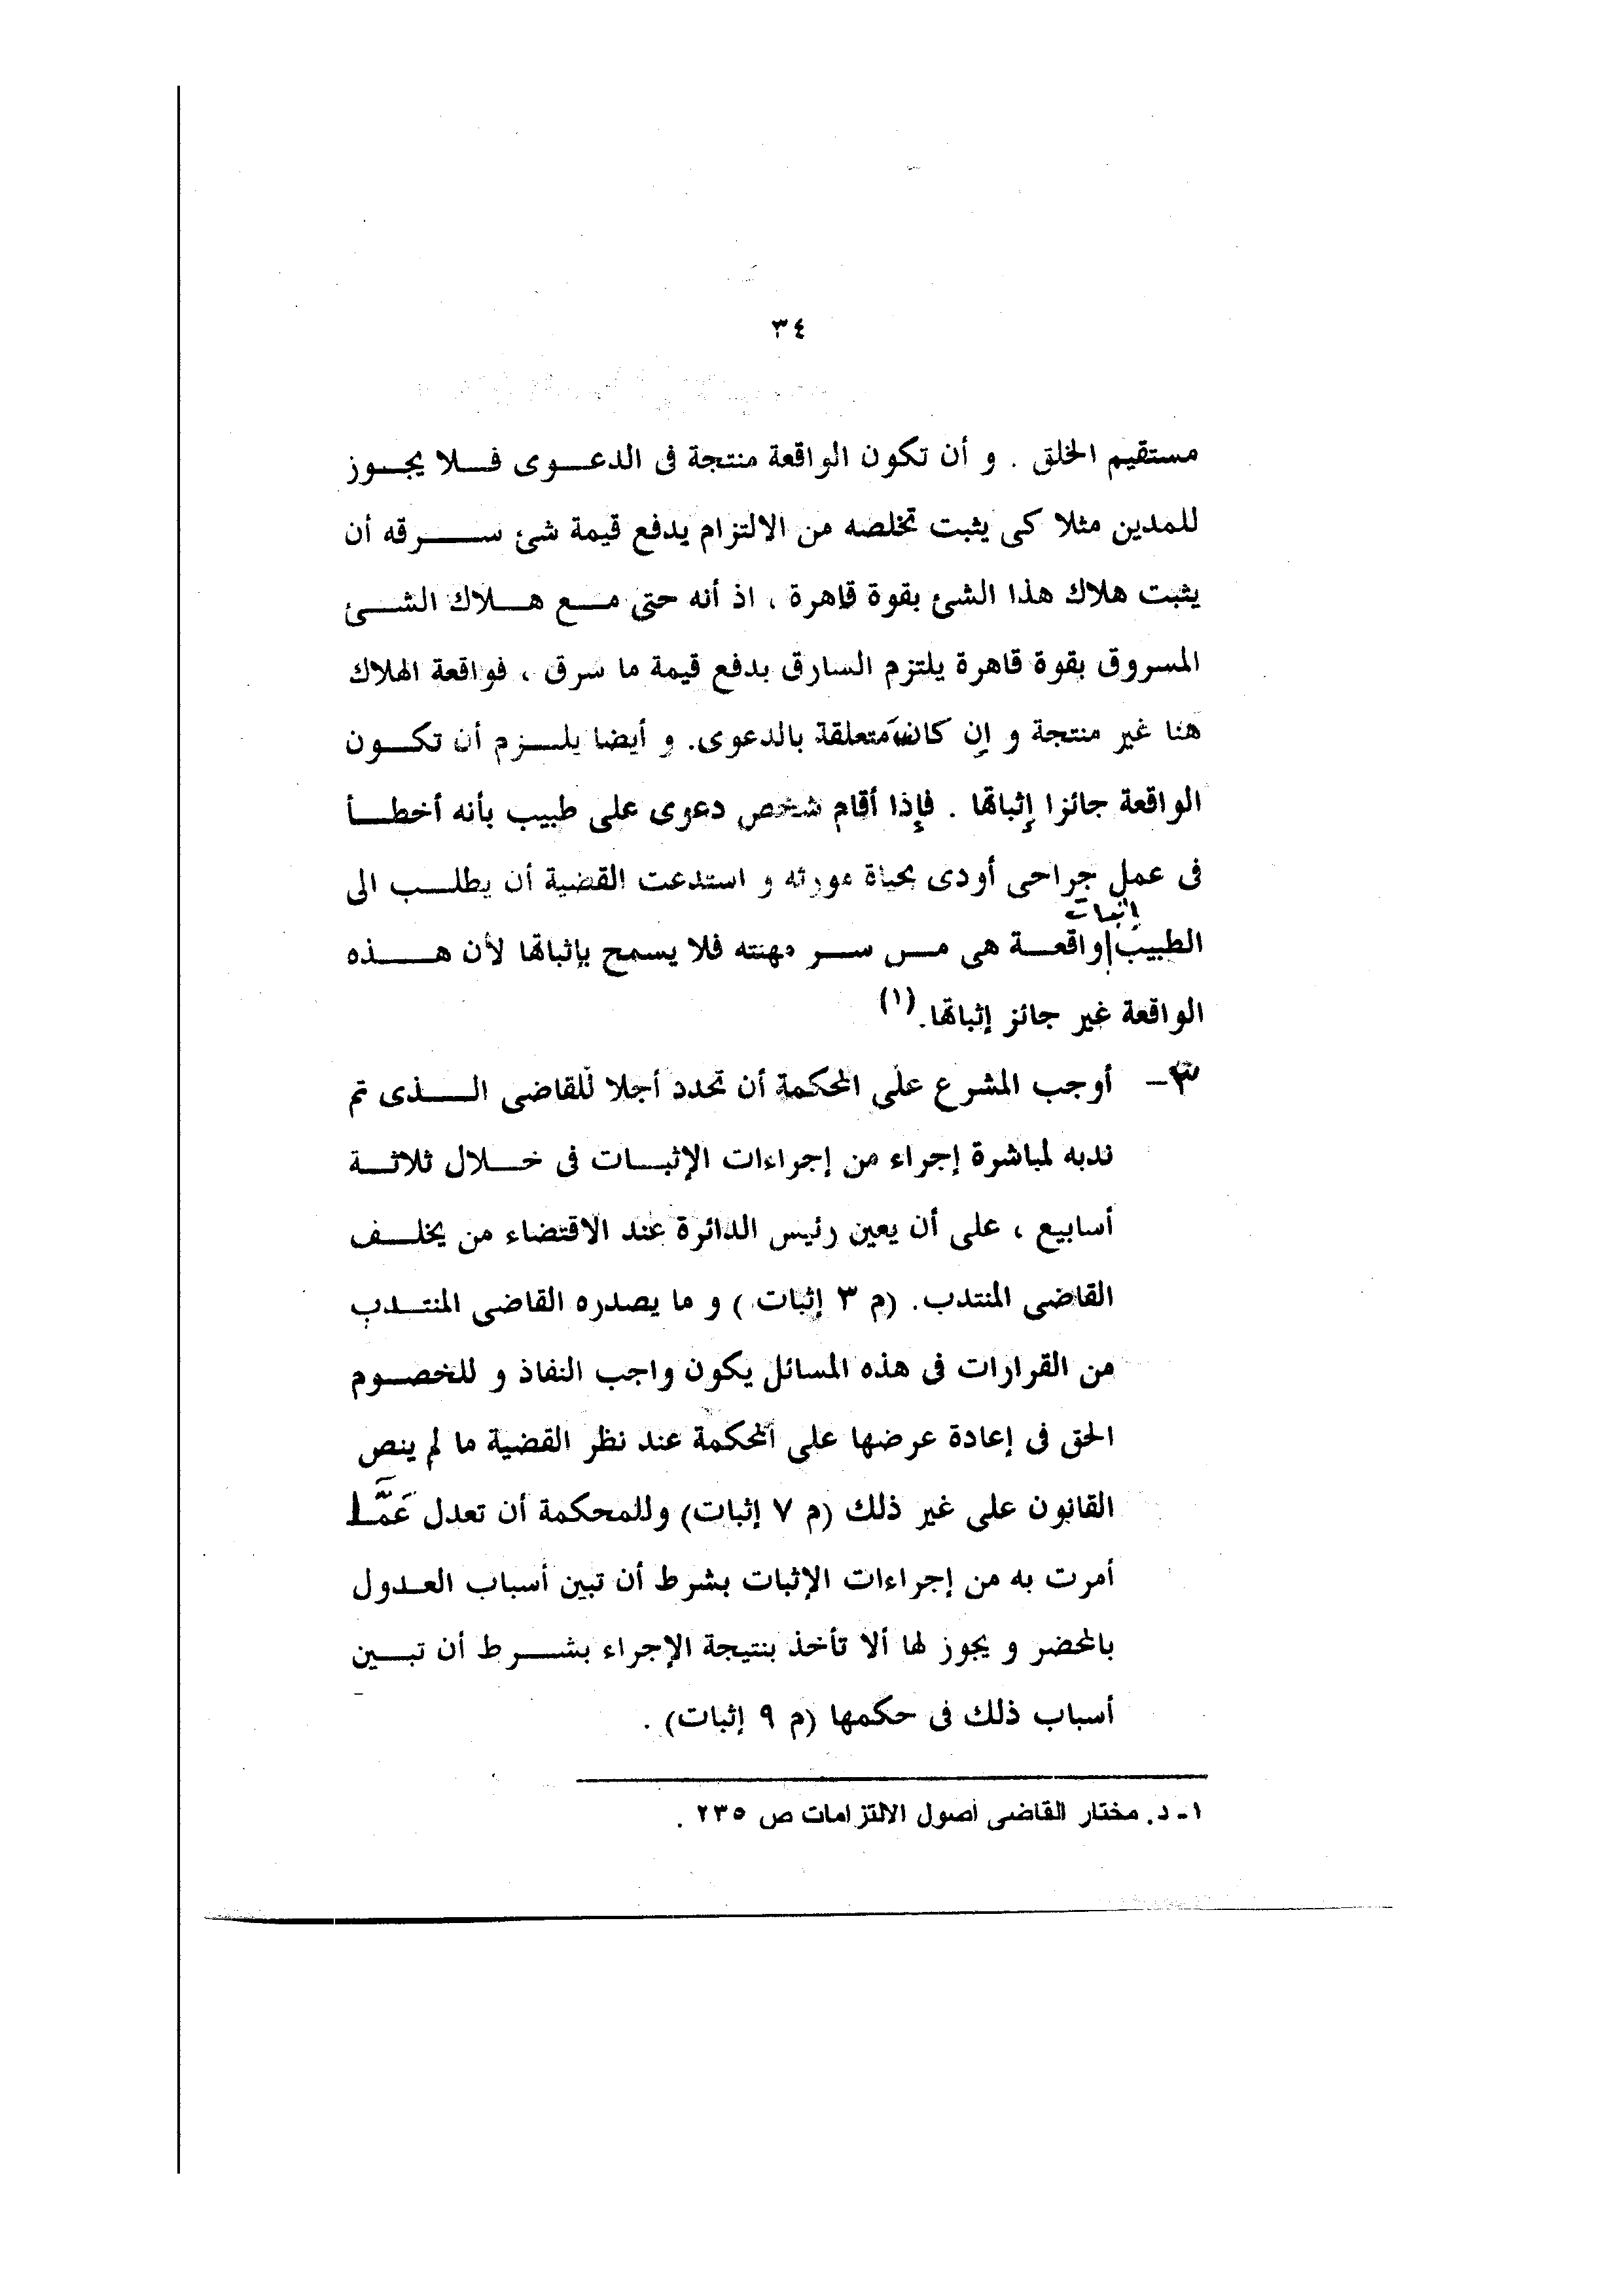 ٣٤
مستقيم الخلق . و أن تكون الواقعة منتجة فى الدعوى فلا يجوز
للمدين مثلا كى يثبت تخلصه من الالتزام يدفع قيمة شئ سرقه أن
يثبت هلاك هذا الشئ بقوة قاهرة ، اذ أنه حتى مع هلاك الشئ
المسروق بقوة قاهرة يلتزم السارق بدفع قيمة ما سرق ، فواقعة الهلاك
هنا غير منتجة و إن كانت متعلقة بالدعوى. و أيضا يلزم أن تكون
الواقعة جائزا إثباتها . فإذا أقام شخص دعوى على طبيب بأنه أخطأ
فى عمل جراحى أودى بحياة مورثه و استدعت القضية أن يطلب الى
إثبات
الطبيب واقعة هى من سر مهنته فلا يسمح بإثباتها لأن هذه
الواقعة غير جائز إثباتها.(١)
٣- أوجب المشرع على المحكمة أن تحدد أجلا للقاضى الذى تم
ندبه لمباشرة إجراء من إجراءات الإثبات فى خلال ثلاثة
أسابيع ، على أن يعين رئيس الدائرة عند الاقتضاء من يخلف
القاضى المنتدب. (م ٣ إثبات ) و ما يصدره القاضى المنتدب
من القرارات فى هذه المسائل يكون واجب النفاذ و للخصوم
الحق فى إعادة عرضها على المحكمة عند نظر القضية ما لم ينص
القانون على غير ذلك (م ٧ إثبات) وللمحكمة أن تعدل عَمَّا
أمرت به من إجراءات الإثبات بشرط أن تبين أسباب العدول
بالمحضر و يجوز لها ألا تأخذ بنتيجة الإجراء بشرط أن تبين
أسباب ذلك فى حكمها (م ٩ إثبات) .
١- د. مختار القاضى أصول الالتزامات ص ٢٣٥ .